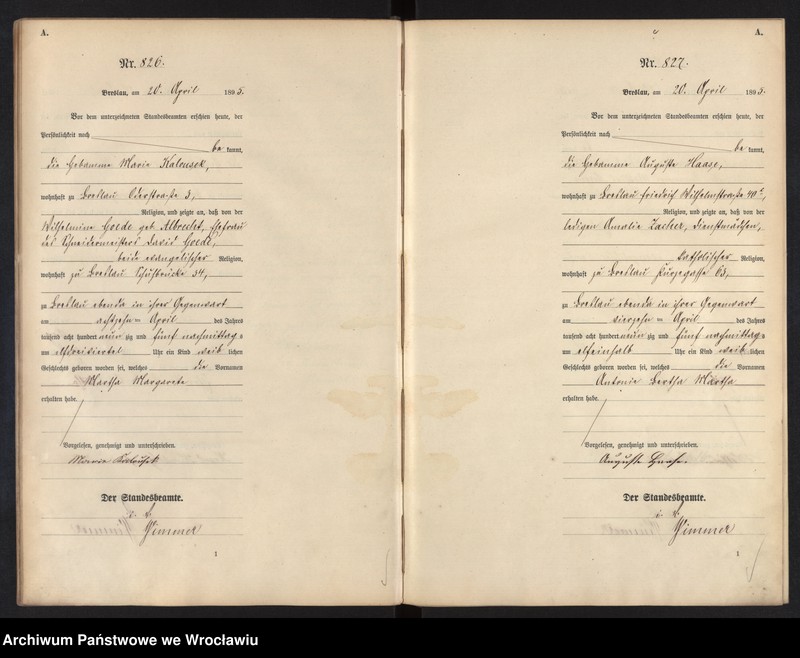 A.
Nr. 826.
Breslau, am 20. April 1895.
Vor dem unterzeichneten Standesbeamten erschien heute, der
Persönlichkeit nach
be kannt,
die Hebamme Marie Kalousek,
wohnhaft zu Breslau Oderstraße 3,
Religion, und zeigte an, daß von der
Wilhelmine Goede geb. Albrecht, Ehefrau
des Schneidermeisters David Goede,
beide evangelischer Religion,
wohnhaft zu Breslau Schuhbrücke 34,
zu Breslau ebenda in ihrer Gegenwart
am achtzehn ten April des Jahres
tausend acht hundert neun zig und fünf nachmittags
um elfdreiviertel Uhr ein Kind weib lichen
Geschlechts geboren worden sei, welches die Vornamen
Martha Margarete
erhalten habe.
Vorgelesen, genehmigt und unterschrieben.
Marie Kalousek
Der Standesbeamte.
i. V.
Zimmer
1
A.
Nr. 827.
Breslau, am 20. April 1895.
Vor dem unterzeichneten Standesbeamten erschien heute, der
Persönlichkeit nach
be kannt,
die Hebamme Auguste Haase,
wohnhaft zu Breslau Friedrich Wilhelmstraße
Religion, und zeigte an, daß von der
ledigen Amalie Zacher, Dienstmädchen,
katholischer Religion,
wohnhaft zu Breslau Kurzegasse 63,
zu Breslau ebenda in ihrer Gegenwart
am vierzehn ten April des Jahres
tausend acht hundert neun zig und fünf nachmittags
um elfeinhalb Uhr ein Kind weib lichen
Geschlechts geboren worden sei, welches die Vornamen
Antonie Bertha Martha
erhalten habe.
Vorgelesen, genehmigt und unterschrieben.
Auguste Haase.
Der Standesbeamte.
i. V.
Zimmer
1
Archiwum Państwowe we Wrocławiu